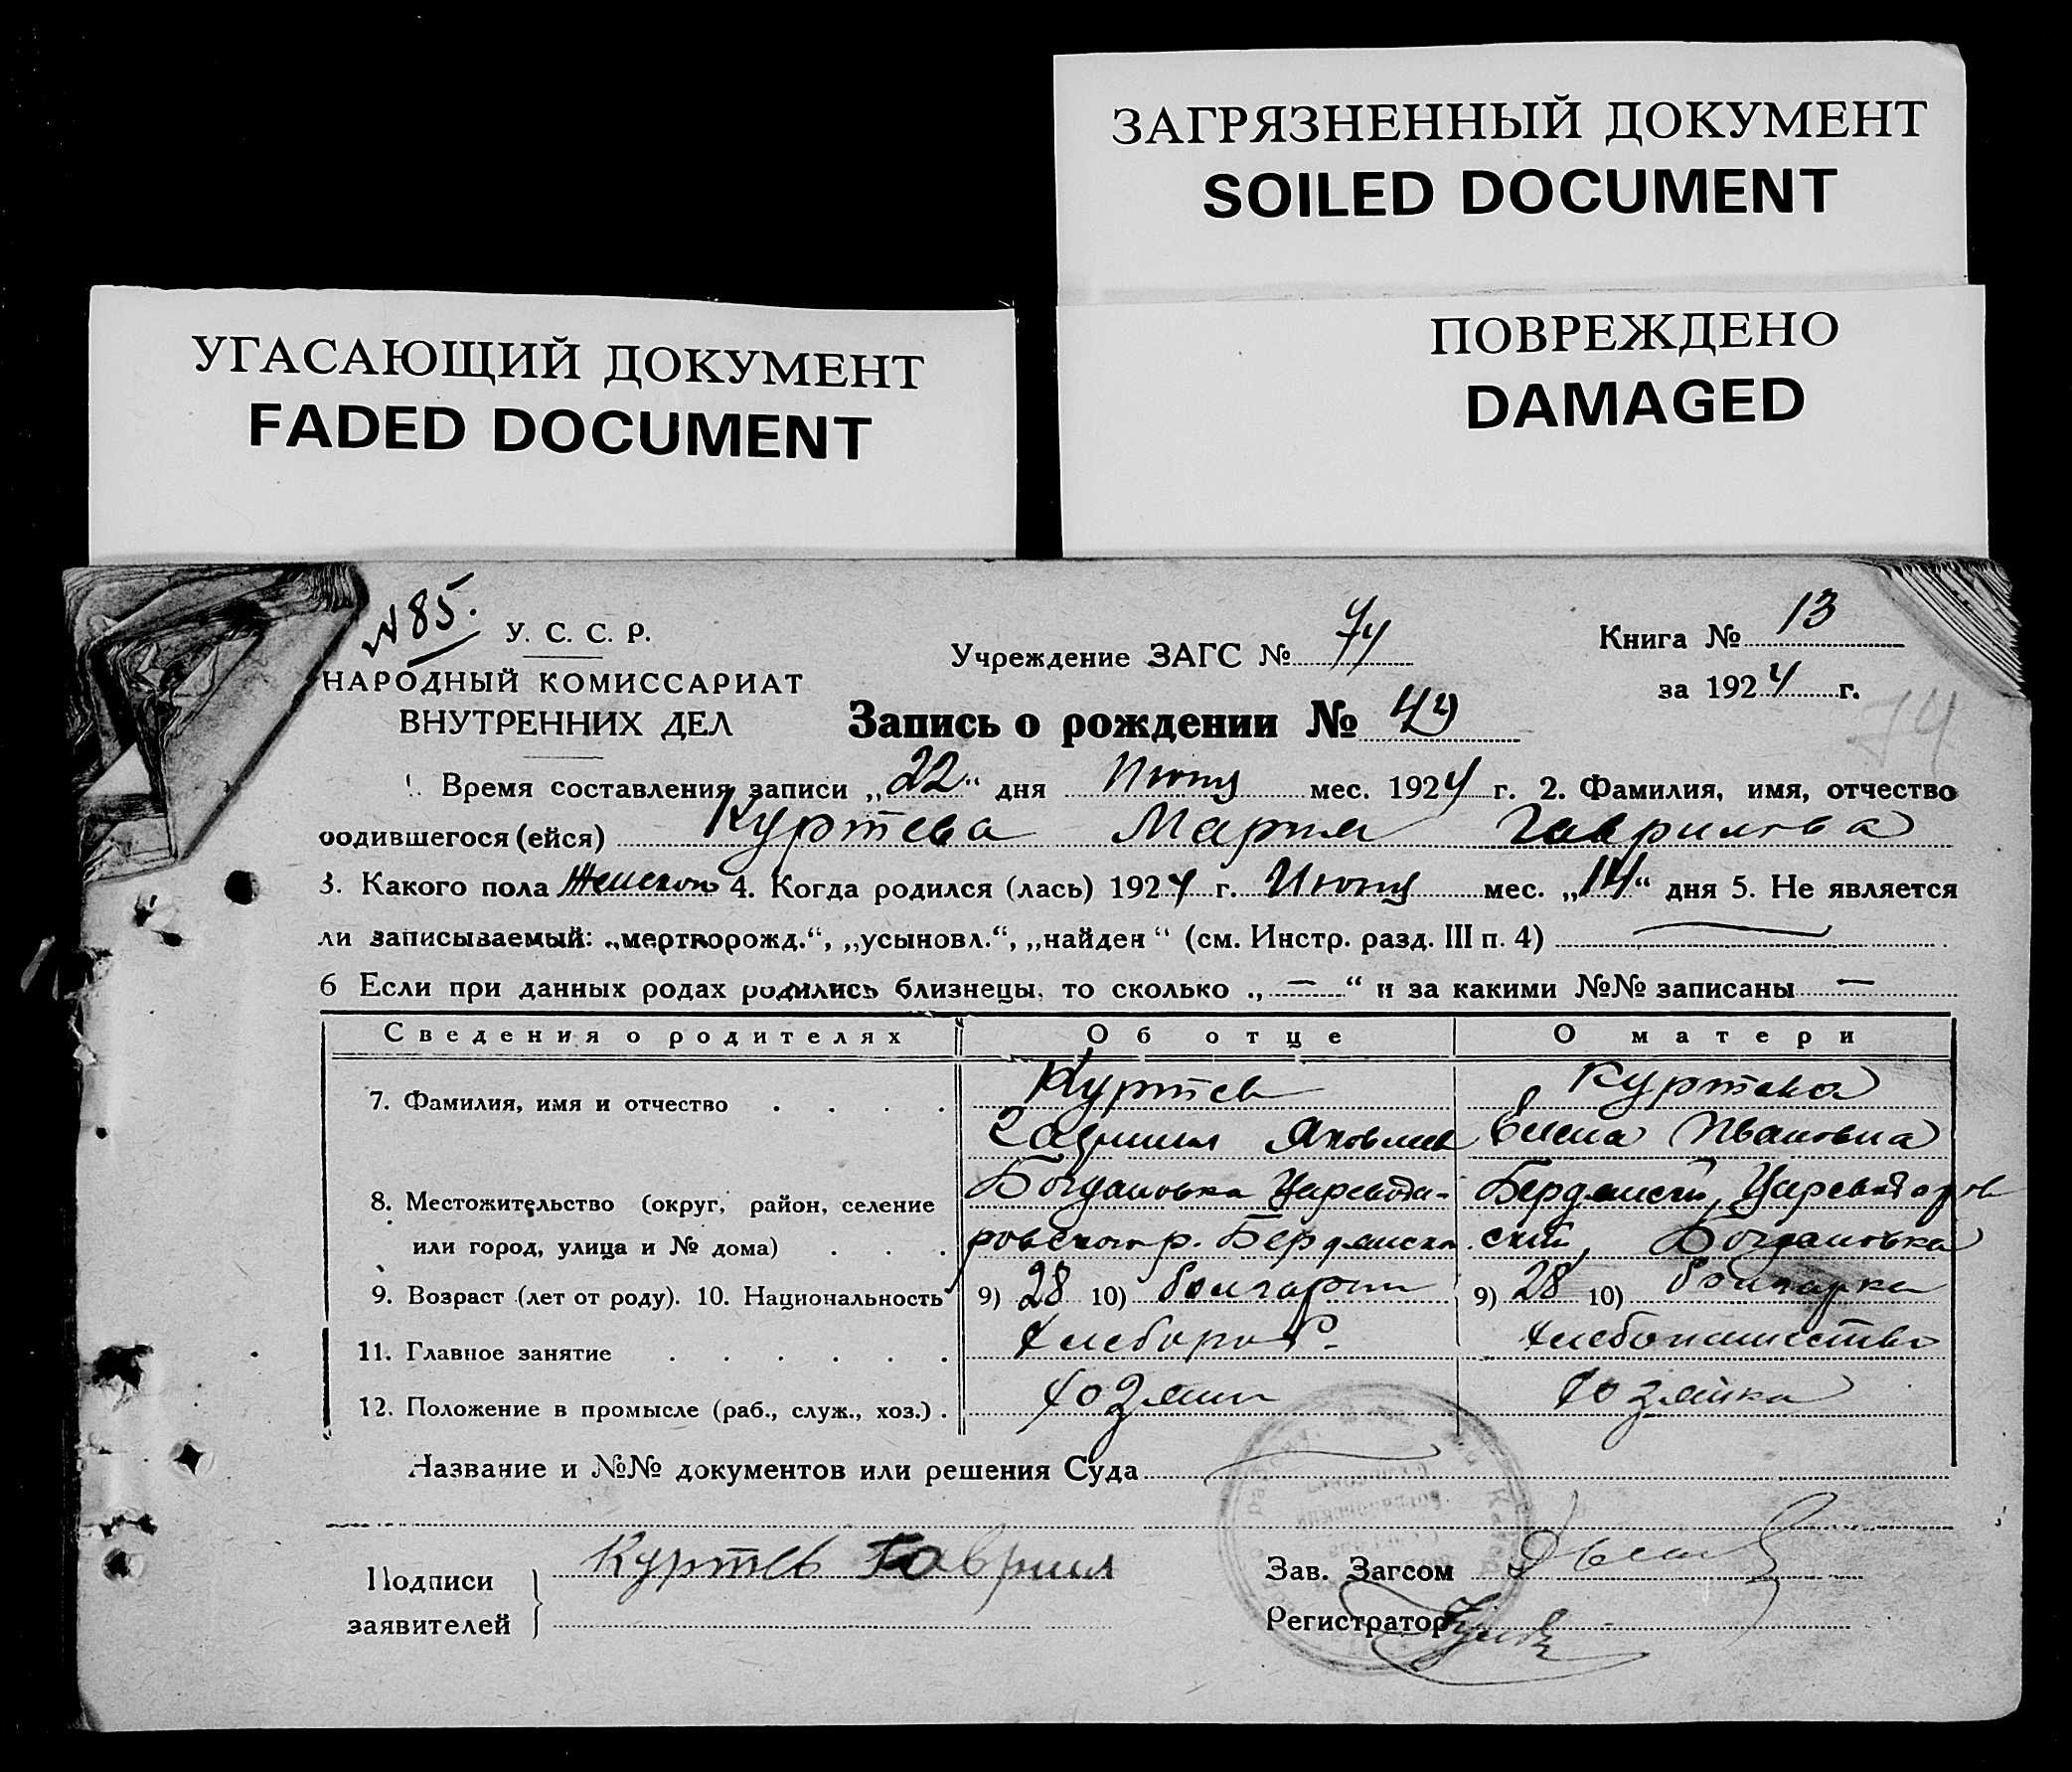 ЗАГРЯЗНЕННЫЙ ДОКУМЕНТ
SOILED DOCUMENT
УГАСАЮЩИЙ ДОКУМЕНТ
FADED DOCUMENT
ПОВРЕЖДЕНО
DAMAGED
№ 85.
У. С. С. Р.
НАРОДНЫЙ КОМИССАРИАТ
ВНУТРЕННИХ ДЕЛ
Учреждение ЗАГС №
Книга № 13
за 1924 г.
74
Запись о рождении № 49
1. Время составления записи „22“ дня мес. 1924 г. 2. Фамилия, имя, отчество
родившегося (ейся) Куртева Мария Гаврилова
3. Какого пола Женского 4. Когда родился (лась) 1924 г. мес. „14“ дня 5. Не является
ли записываемый: „мертворожд.“, „усыновл.“, „найден“ (см. Инстр. разд. III п. 4) —
6 Если при данных родах родились близнецы, то сколько „—“ и за какими №№ записаны —
Сведения о родителях Об отце О матери
7. Фамилия, имя и отчество . . . . Куртев Куртева
Гавриил Яковлев Елена Ивановна
8. Местожительство (округ, район, селение Богдановка Цареводаровского р. Бердянск, Цареводаров
или город, улица и № дома) . . . Бердянско ский, Богдановка
9. Возраст (лет от роду). 10. Национальность 9) 28 10) болгарин 9) 28 10) болгарка
11. Главное занятие . . . . . . Хлебороб. Хлебопашество
12. Положение в промысле (раб., служ., хоз.) . хозяин хозяйка
Название и №№ документов или решения Суда —
Подписи
заявителей
Куртев Гавриил
Зав. Загсом
Регистратор